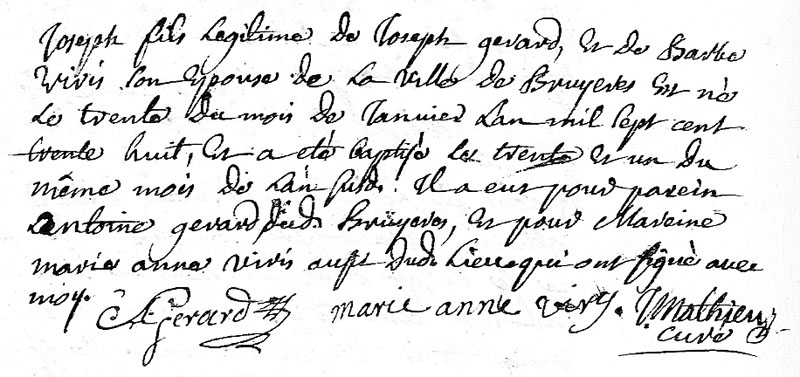 Joseph fils Legitime de Joseph gerard, Et de Barbe
Viris son Epouse de La Ville de Bruyeres Est né
Le trente du mois de Janvier Lan mil sept cent
trente huit, Et a eté baptisé Le trente Et un du
même mois de Lan susd. Il a eut pour parein
antoine gerard dud. Bruÿeres, Et pour Mareine
marie anne viris aussi dud. Lieu qui ont signé avec
moy.
A Gerard marie anne viry. J Mathieu
curé